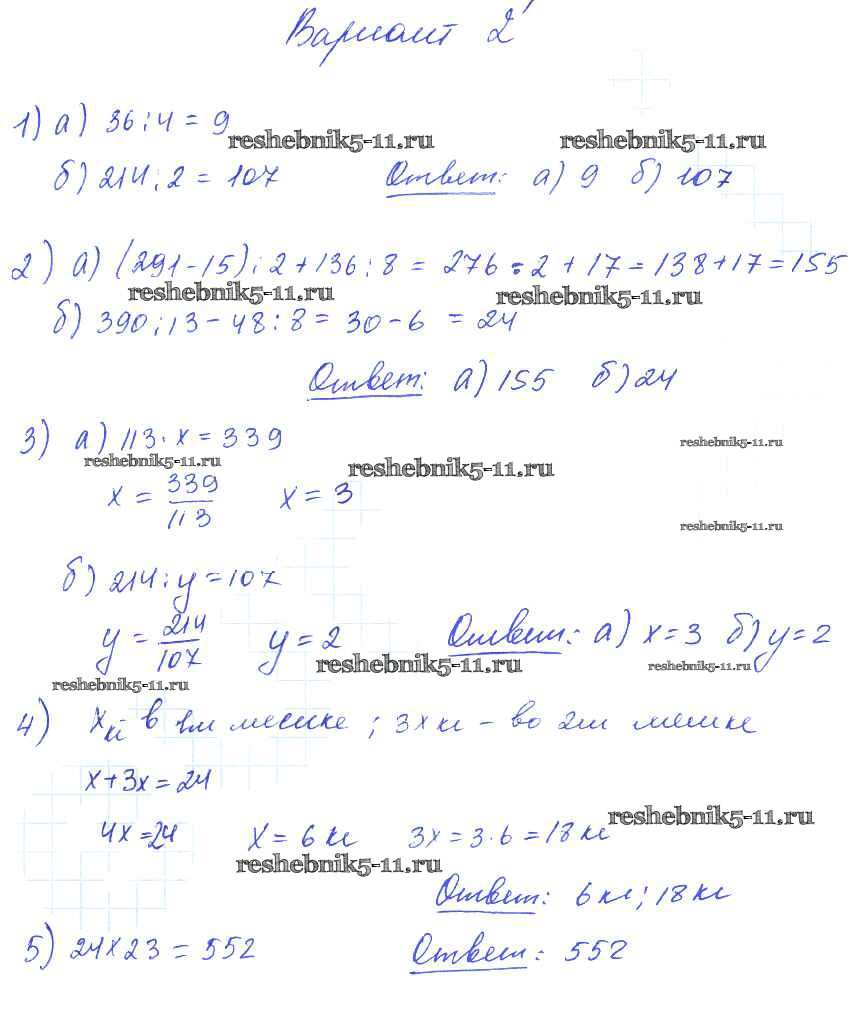 Вариант 2
1) а) 36 : 4 = 9
reshebnik5-11.ru reshebnik5-11.ru
б) 214 : 2 = 107 Ответ: а) 9 б) 107
2) а) (291-15) : 2 + 136 : 8 = 276 : 2 + 17 = 138 + 17 = 155
reshebnik5-11.ru reshebnik5-11.ru
б) 390 : 13 - 48 : 8 = 30 - 6 = 24
Ответ: а) 155 б) 24
3) а) 113 · x = 339
reshebnik5-11.ru
reshebnik5-11.ru reshebnik5-11.ru
x = 339/113 x = 3
reshebnik5-11.ru
б) 214 : y = 107
y = 214/107 y = 2 Ответ: а) x = 3 б) y = 2
reshebnik5-11.ru reshebnik5-11.ru
reshebnik5-11.ru
4) x в 1м мешке ; 3x кг - во 2м мешке
x + 3x = 24
reshebnik5-11.ru
4x = 24 x = 6 кг 3x = 3 · 6 = 18 кг
reshebnik5-11.ru
Ответ: 6 кг ; 18 кг
5) 24 x 23 = 552 Ответ: 552